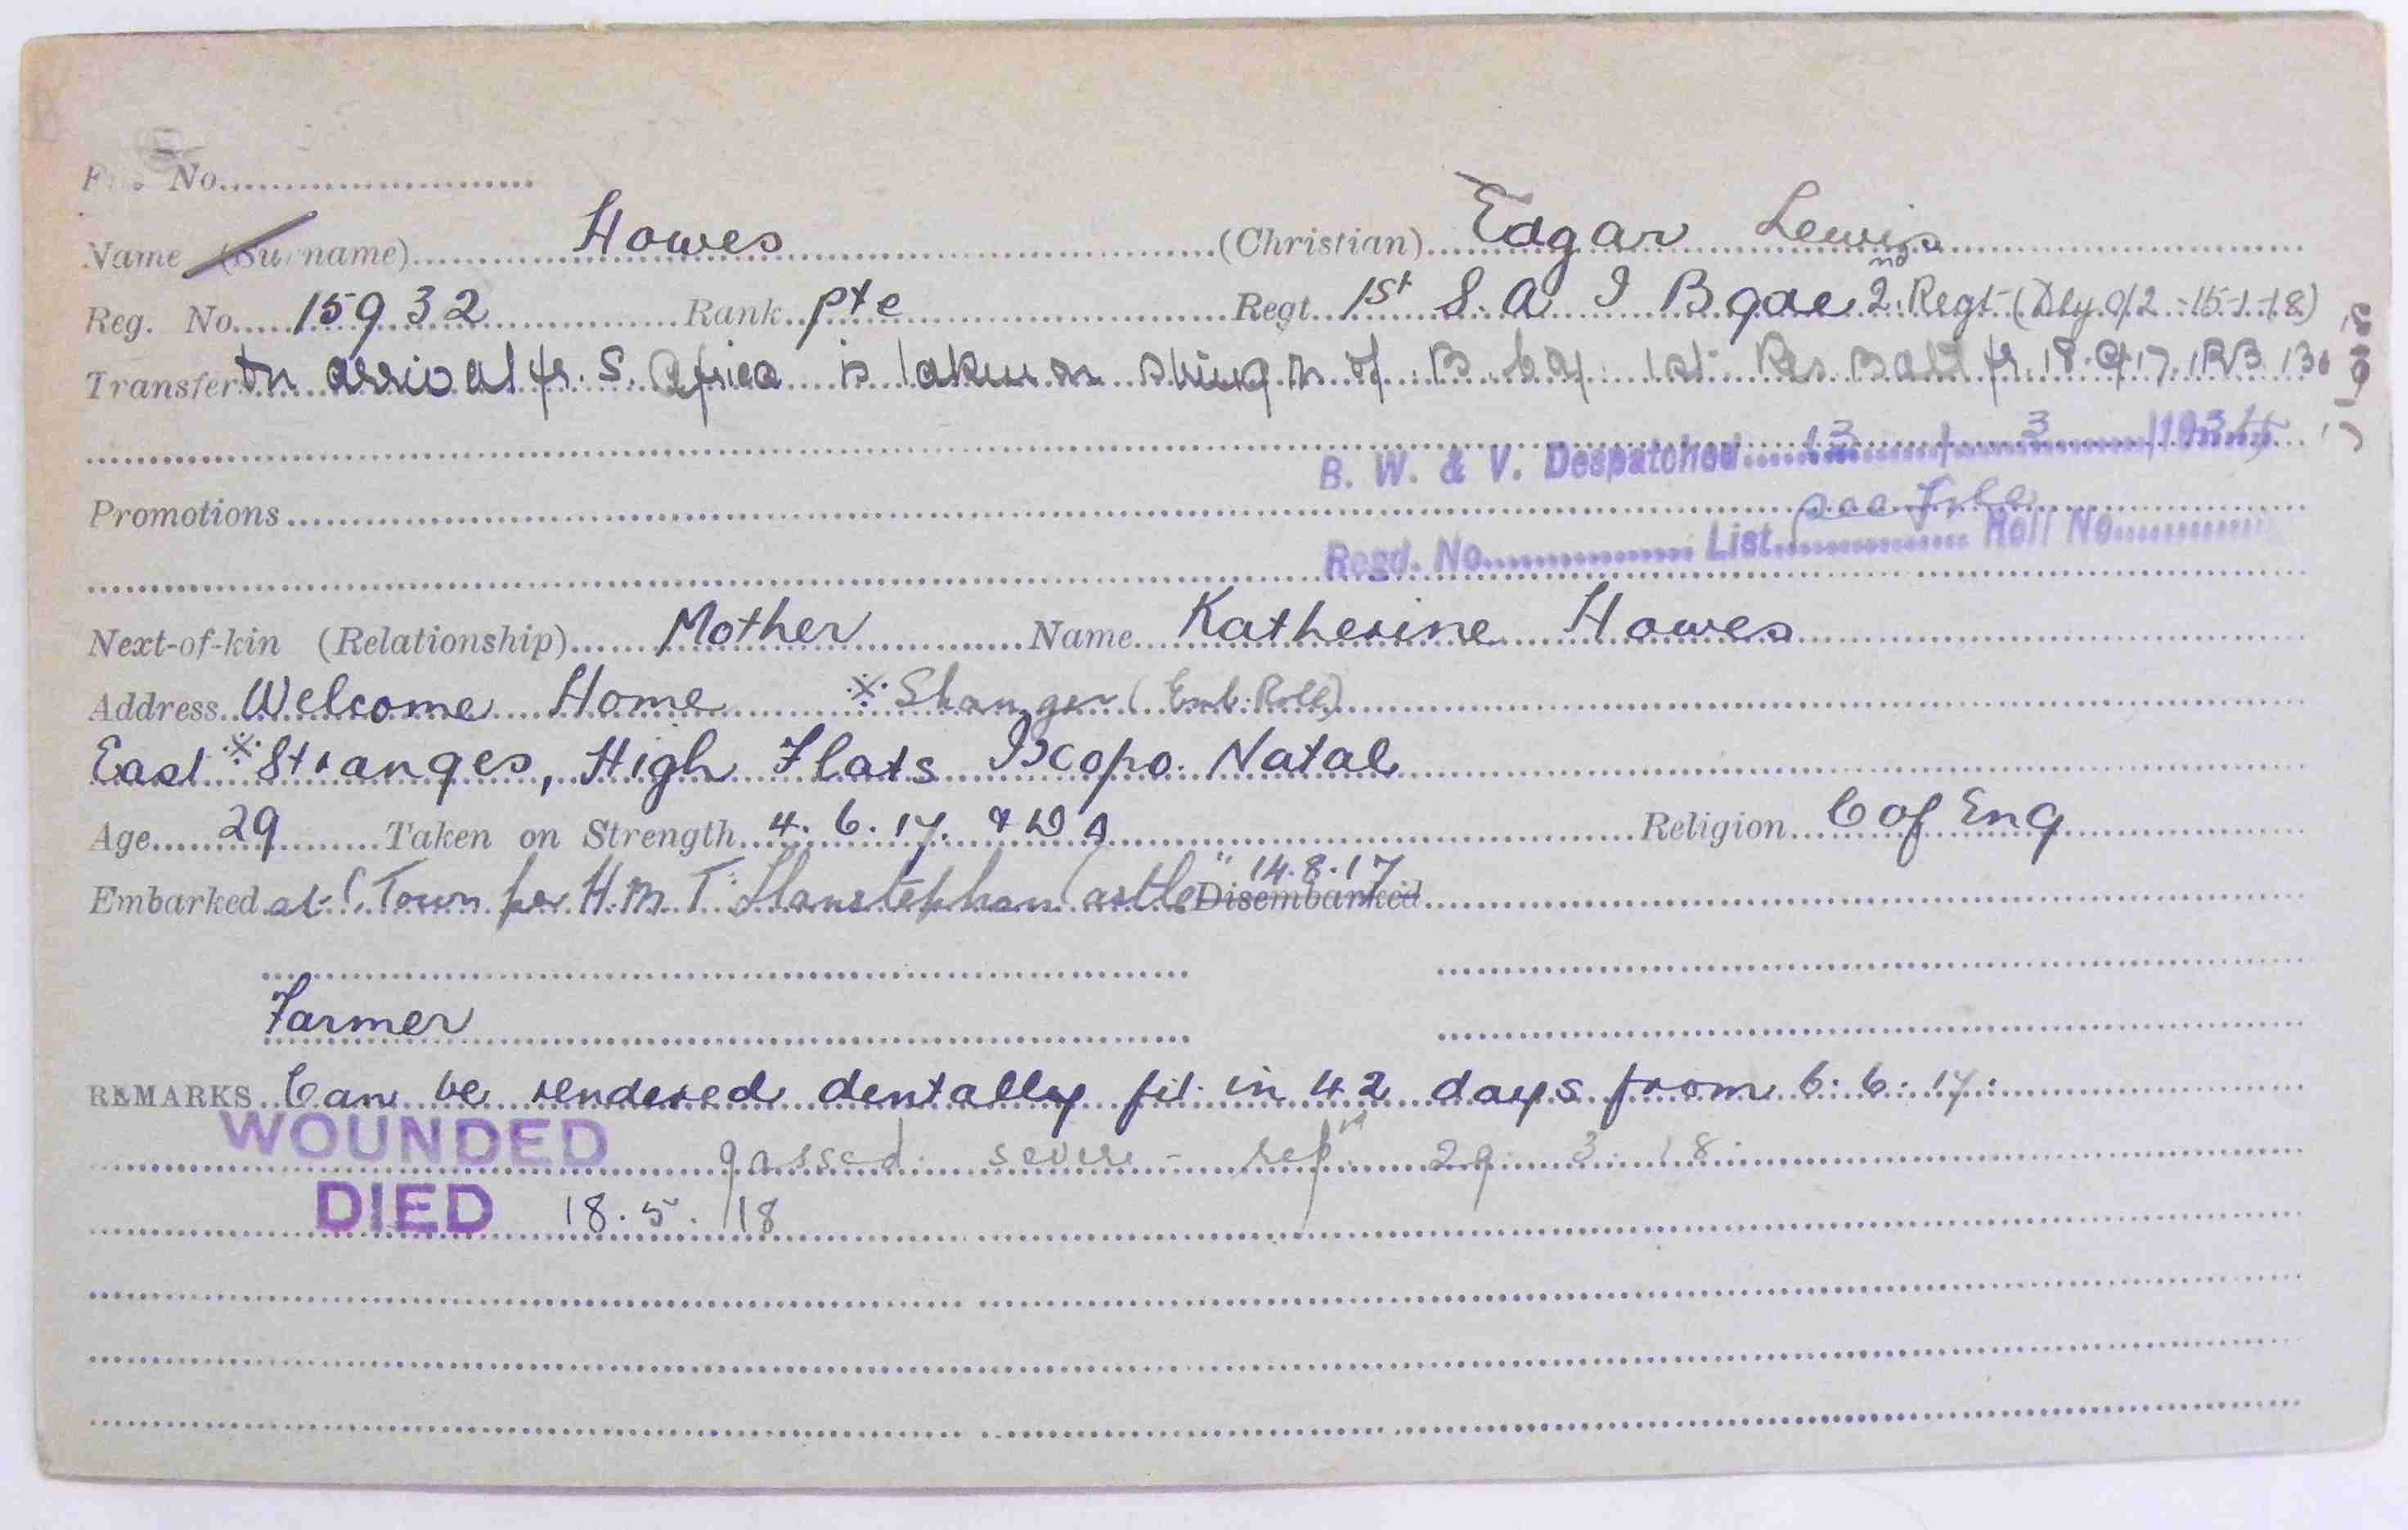 No.
Name (Surname) Howes (Christian) Edgar Lewis
Reg. No. 15932 Rank Pte Regt. 1st S. A I Bgde 2nd Regt (Dly. o/2 - 15-1-18)
Transfer On arrival fr. S. Africa is taken on strength of B Coy 1st Res. Batt fr. 18.9.17.
B. W. & V. Despatched 13 / 3 /193
Promotions see File
Regd. No. List Roll No.
Next-of-kin (Relationship) Mother Name Katherine Howes
Address Welcome Home ※ Stanger (Emb. Roll)
East ※ Stranges, High Flats Ixopo. Natal
Age 29 Taken on Strength 4. 6. 17. Religion C of Eng
Embarked at C. Town per H.M.T. Llanstephan Castle" 14.8.17 Disembarked
Farmer
REMARKS Can be rendered dentally fit in 42 days from 6: 6: 17:
WOUNDED gassed severe - rep 29 3 18
DIED 18. 5. 18